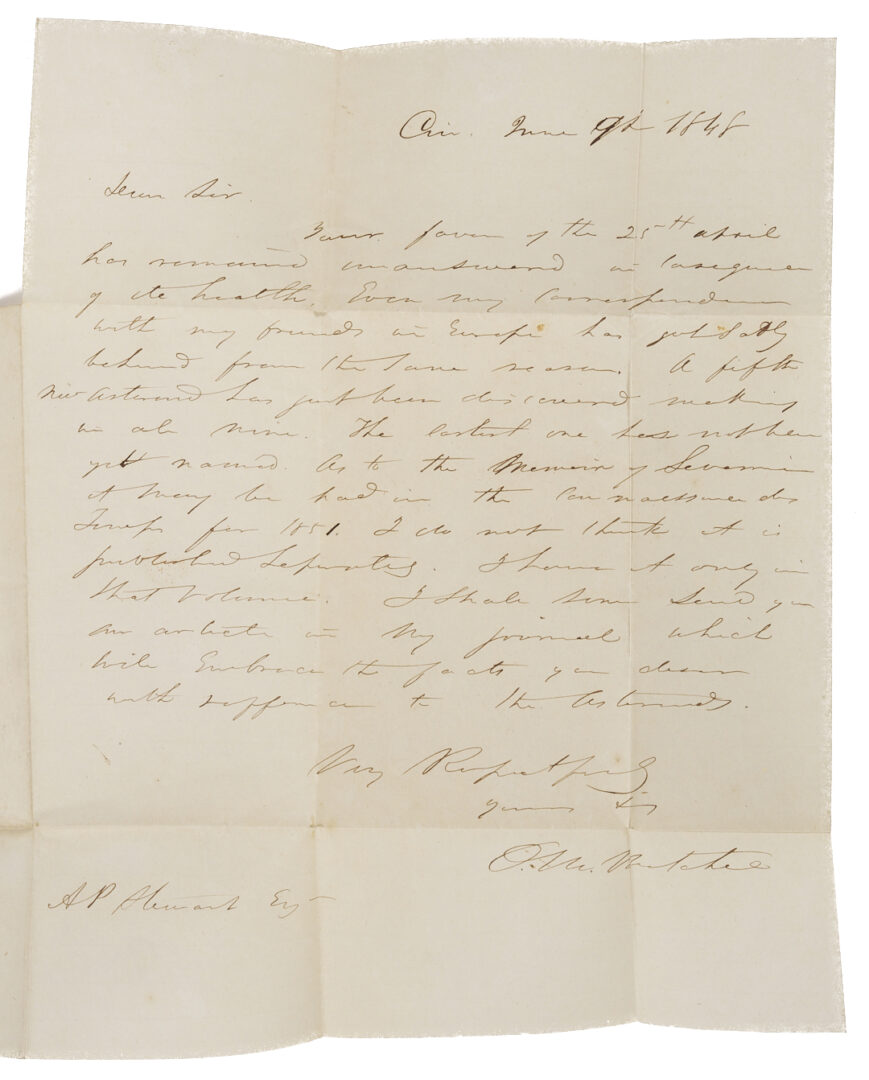 Cin. June 9th 1848
Dear Sir.
Your favor of the 25th april
has remained unanswered in Consequence
of ill health. Even my Correspondence
with my friends in Europe has got sadly
behind from the same reason. A fifth
new asteroid has just been discovered making
in all nine. The lastest one has not been
yet named. As to the Memoir of Leverrier
it may be had in the Connaissance des
Temps for 1851. I do not think it is
published Seperately. I have it only in
that Volume. I shall soon send you
an article in my journal which
will Embrace the facts you desire
with refference to the Asteroids.
Very Respectfully
yours &c
O. M. Mitchel
A P Stewart Esq